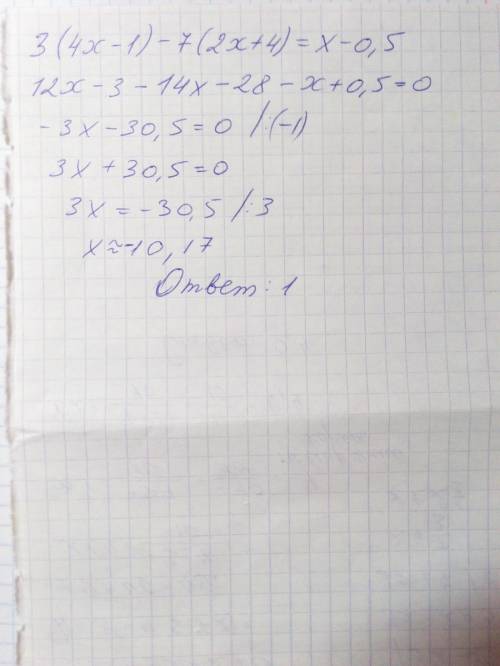 3(4x-1)-7(2x+4)=x-0,5
12x-3-14x-28-x+0,5=0
-3x-30,5=0 /:(-1)
3x+30,5=0
3x=-30,5 /:3
x≈-10,17
Ответ: 1